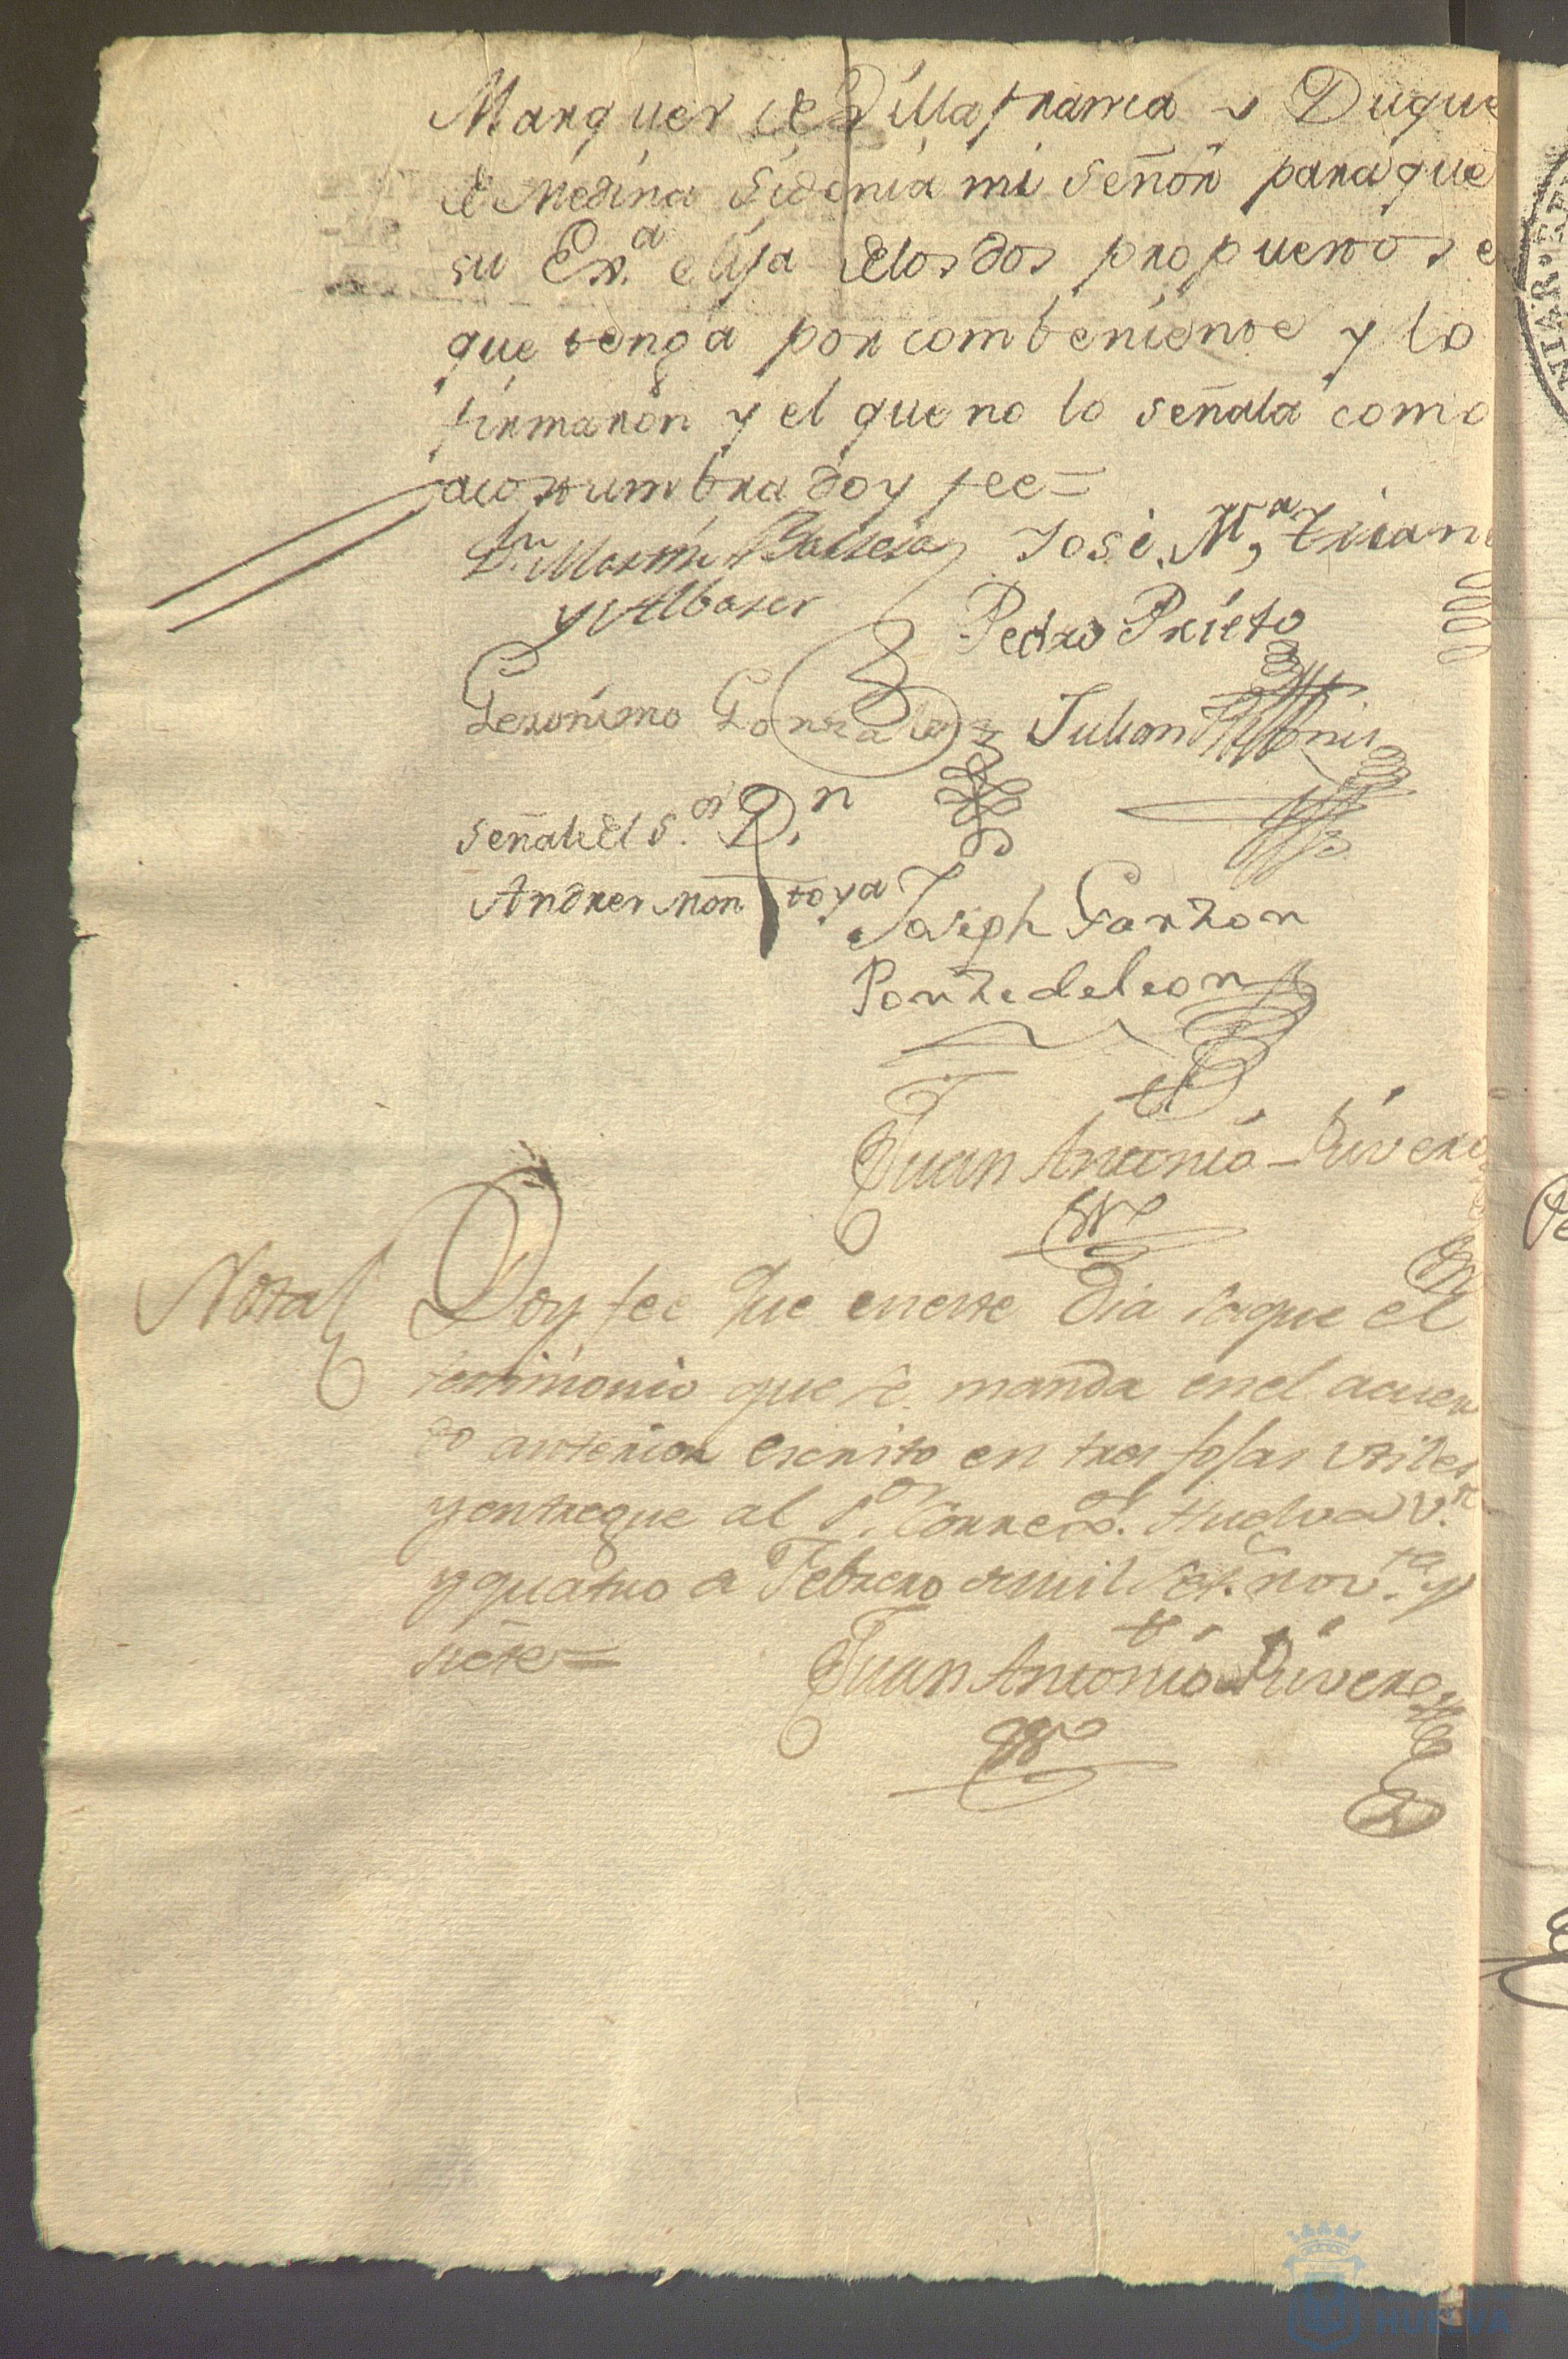 Marques de Villafranca y Duque
de Medina Sidonia mi señor para que
su Exª. elija delos dos propuestos e
que tenga por combeniente y lo
firmaron y el que no lo señala como
acostumbra doy fee=
Dn. Martin Barrera José Mª, Trian
y Albaser
Pedro Prieto
Geronimo Gonzalez Julian
Señal del Sor. Dn.
Andres Montoya
Joseph Garzon
Ponze de leon
Juan Antonio Rivero
Nota Doy fee que eneste dia saque el
testimonio que se manda enel acuer
do anterior escrito en tres fojas utiles
y entregue al Sor. Corregor. Huelva Vte.
y quatro de Febrero de mil set. novta. y
siete=
Juan Antonio Rivero
HUELVA